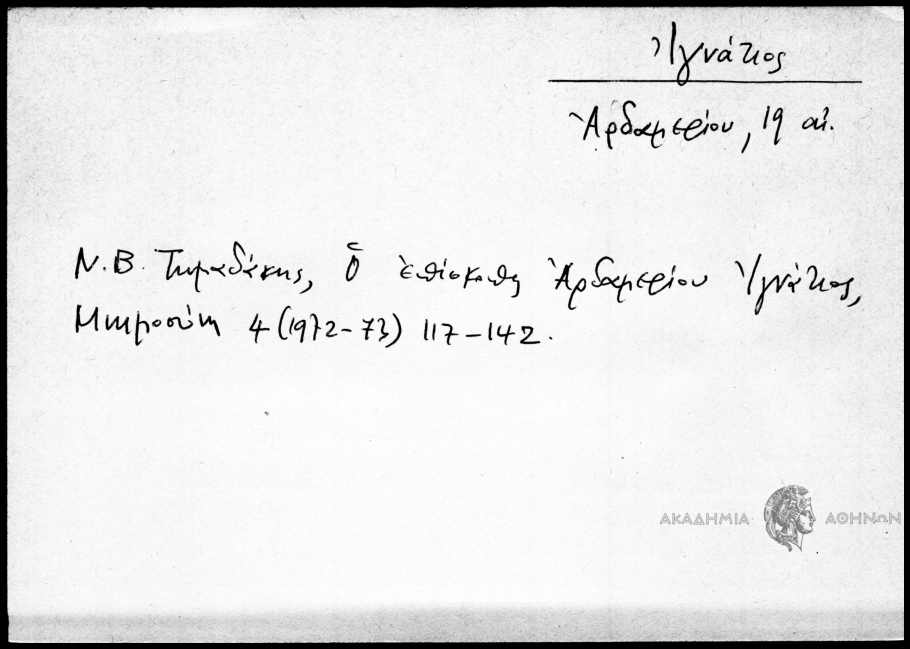 Ἰγνάτιος
Ἀρδαμερίου, 19 αἰ.
Ν. Β. Τωμαδάκης, Ὁ ἐπίσκοπος Ἀρδαμερίου Ἰγνάτιος,
Μνημοσύνη 4 (1972-73) 117-142.
ΑΚΑΔΗΜΙΑ ΑΘΗΝΩΝ